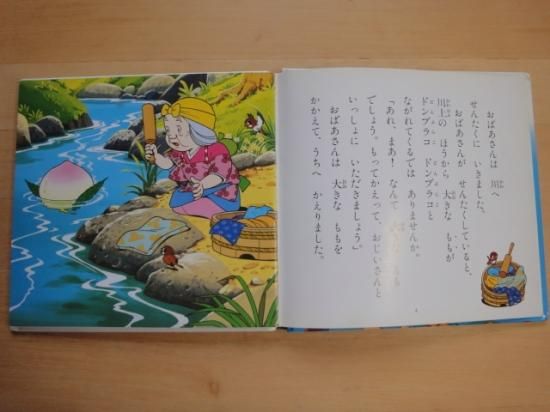 おばあさんは 川へ
せんたくに いきました。
おばあさんが せんたくしていると、
川上の ほうから 大きな ももが
ドンブラコ ドンブラコと
ながれてくるでは ありませんか。
「あれ、まあ! なんて
でしょう。もってかえって、おじいさんと
いっしょに いただきましょう」
おばあさんは 大きな ももを
かかえて、うちへ かえりました。